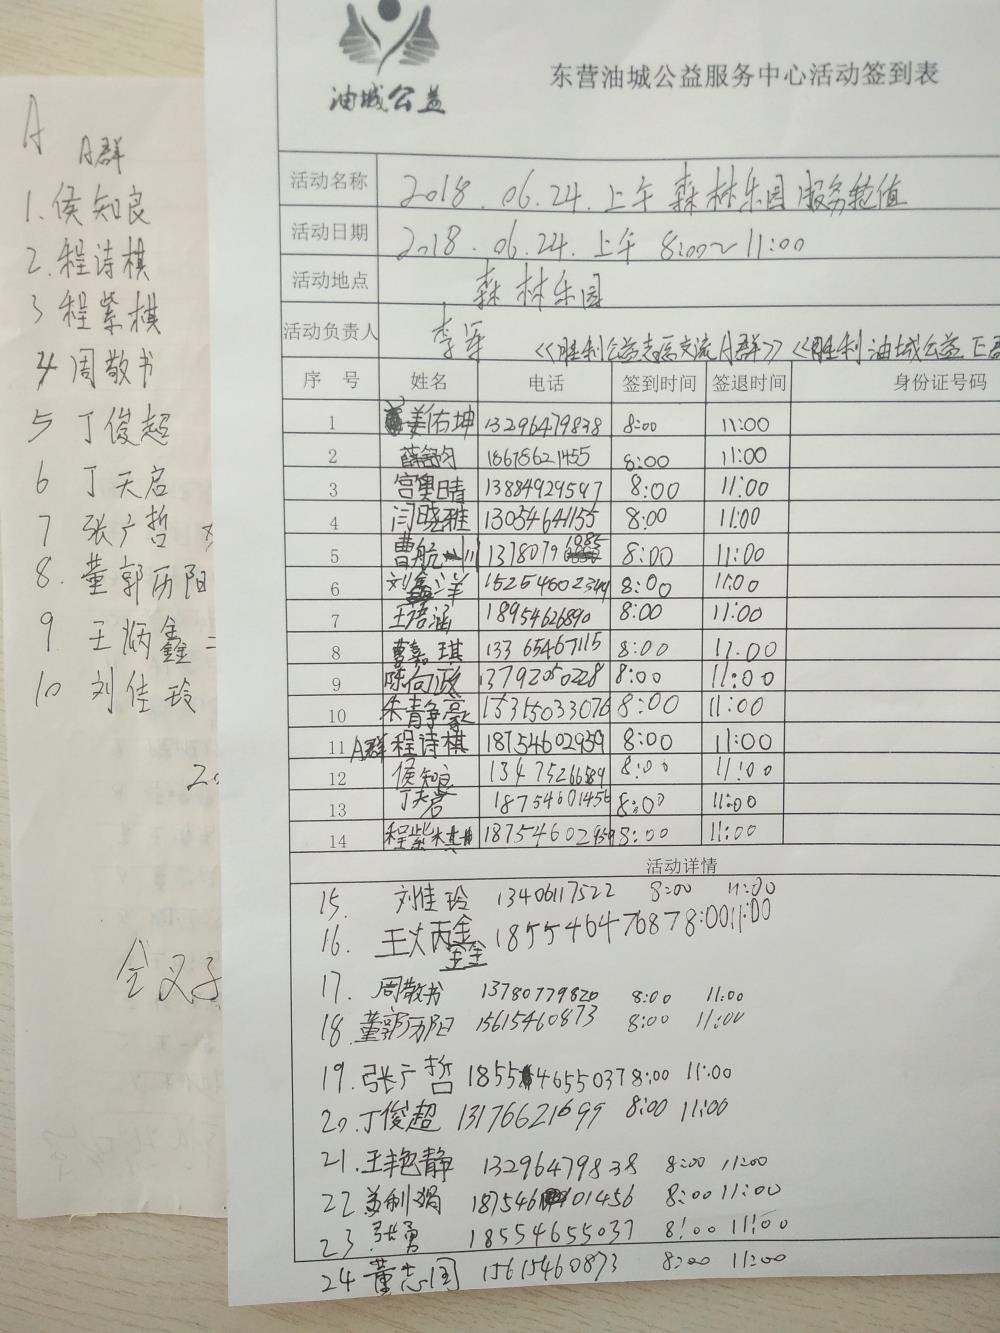 A
A群
1. 侯知良
2. 程诗棋
3 程紫棋
4 周敬书
5 丁俊超
6 丁天启
7 张广哲
8. 董郭历阳
9 王炳鑫
10 刘佳玲
油城公益
东营油城公益服务中心活动签到表
活动名称 2018.06.24.上午 森林乐园服务轮值
活动日期 2018.06.24.上午 8:00~11:00
活动地点 森林乐园
活动负责人 李军 《胜利公益志愿交流A群》《胜利油城公益
序 号 姓名 电话 签到时间 签退时间 身份证号码
1 姜佑坤 13296479838 8:00 11:00
2 薛舒匀 18678621455 8:00 11:00
3 宫奥晴 13884929597 8:00 11:00
4 闫晓雅 13054641155 8:00 11:00
5 曹航川 1378079 1085 8:00 11:00
6 刘鑫洋 15254602344 8:00 11:00
7 王语涵 18954626890 8:00 11:00
8 曹嘉琪 13365467115 8:00 11:00
9 陈向政 13792050228 8:00 11:00
10 朱静豪 15315033076 8:00 11:00
11 A群 程诗棋 18754602959 8:00 11:00
12 侯知良 13475266589 8:00 11:00
13 丁天启 18754601456 8:00 11:00
14 程紫棋 18754602959 8:00 11:00
活动详情
15. 刘佳玲 13406117522 8:00 11:00
16. 王炳鑫 18554647687 8:00 11:00
17. 周敬书 13780779820 8:00 11:00
18. 董郭历阳 15615460873 8:00 11:00
19. 张广哲 18554655037 8:00 11:00
20. 丁俊超 13176621699 8:00 11:00
21. 王艳静 13296479838 8:00 11:00
22 姜利娟 18754601456 8:00 11:00
23 张勇 18554655037 8:00 11:00
24 董志国 15615460873 8:00 11:00